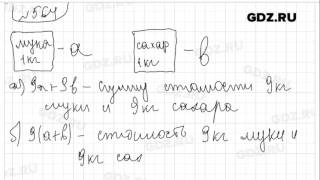 GDZ.RU
№564
мука 1кг - a
сахар 1кг - b
а) 9a+9b - сумму стоимости 9кг
муки и 9кг сахара
б) 9(a+b) - стоимость 9кг муки и
9кг сах